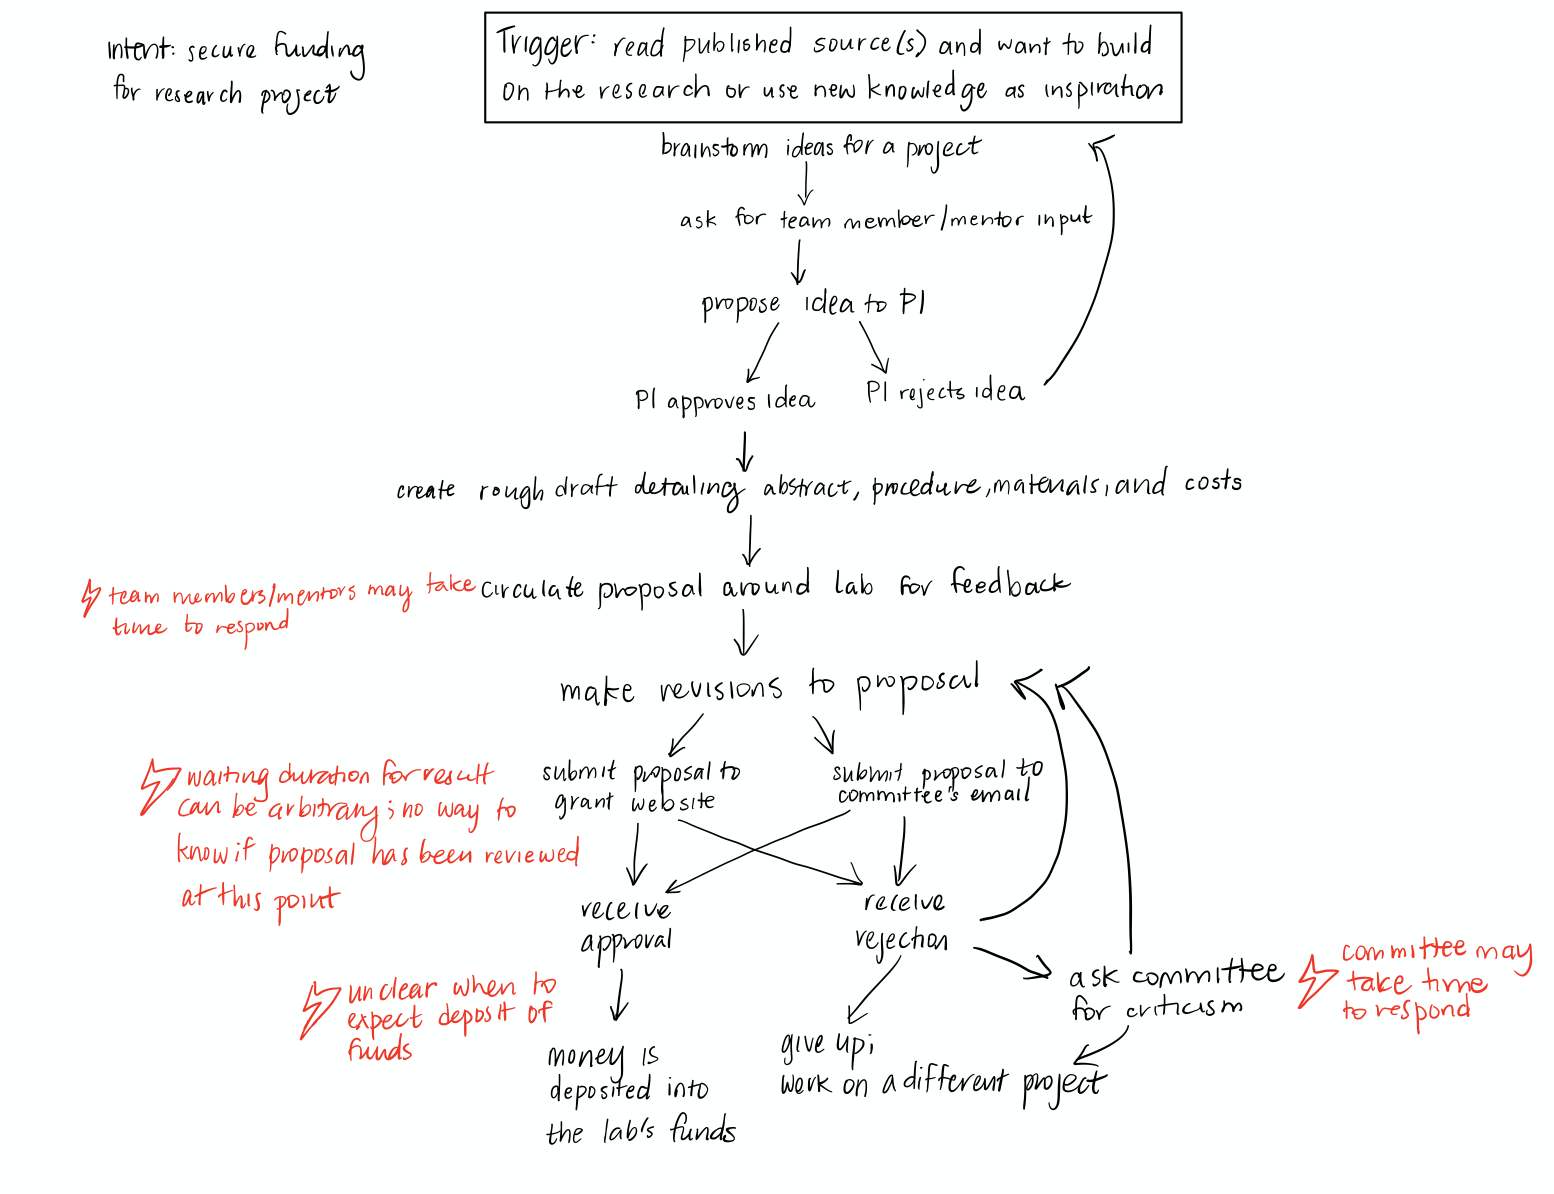 Intent: secure funding
for research project
Trigger: read published source(s) and want to build
on the research or use new knowledge as inspiration
brainstorm ideas for a project
ask for team member/mentor input
propose idea to PI
PI approves idea
PI rejects idea
create rough draft detailing abstract, procedure, materials, and costs
team members/mentors may take
time to respond
circulate proposal around lab for feedback
make revisions to proposal
waiting duration for result
can be arbitrary; no way to
know if proposal has been reviewed
at this point
submit proposal to
grant website
submit proposal to
committee's email
receive
approval
receive
rejection
ask committee
for criticism
committee may
take time
to respond
unclear when to
expect deposit of
funds
money is
deposited into
the lab's funds
give up;
work on a different project